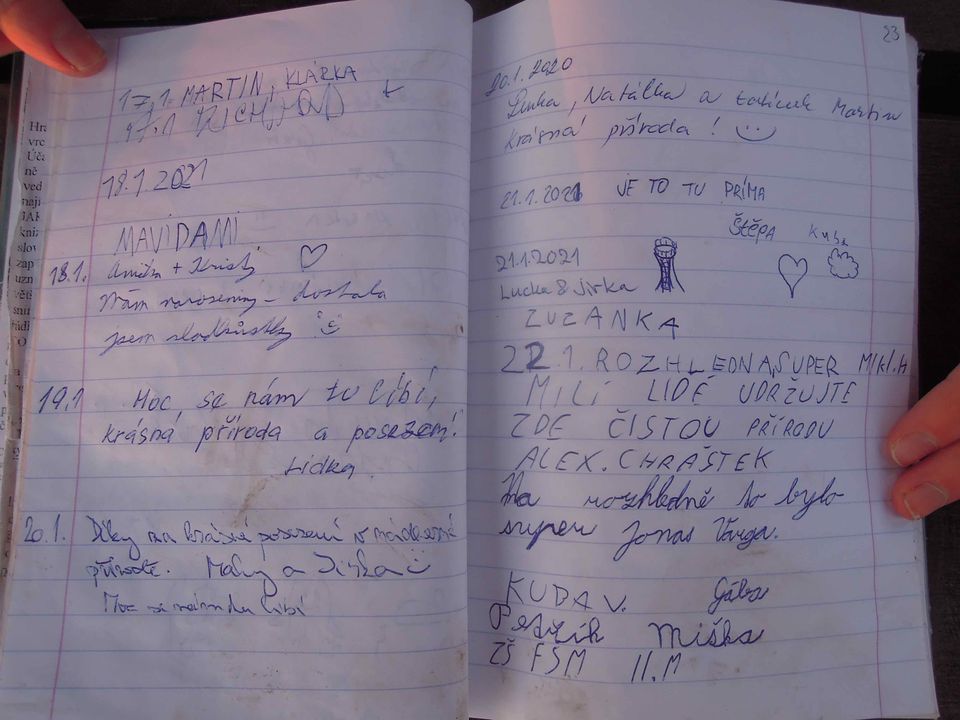 17.1. MARTIN, KLÁRKA
17.1
18.1.2021
MAVIDAMI
18.1. + Kristý
Mám narozeniny - dostala
jsem sladkůstky
19.1 Hoc se nám tu líbí,
krásná příroda a posezení.
Lidka
20.1. Díky za krásné posezení v nádherné
přírodě. a Jirka
Moc se nám tu líbí
23
20.1.2020
Lenka, Natálka a tatínek Martin
Krásná příroda !
21.1.2021 JE TO TU PRÍMA
ŠtěPA Kuba
21.1.2021
Lucka & Jirka
ZUZANKA
22.1. ROZHLEDNA SUPER MIKI.H
MILÍ LIDÉ UDRŽUJTE
ZDE ČISTOU PŘÍRODU
ALEX. CHRAŠTEK
Na rozhledně to bylo
super Jonas Varga.
KUDA V.
Petřík Miška
ZŠ FŠM II.M